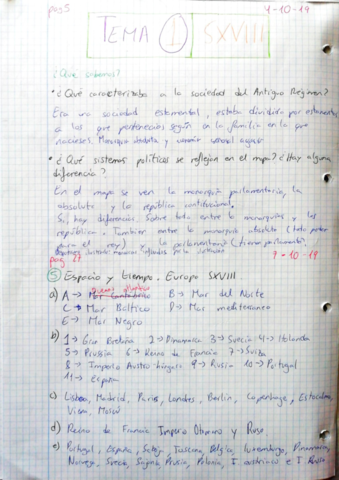 pag 5
4-10-19
TEMA 1 SXVIII
¿Que sabemos?
* ¿Qué caracterizaba a la sociedad del Antiguo Régimen?
Era una sociedad estamental, estaba dividida por estamentos
a los que pertenecías según a la familia en la que
nacieses.
* ¿Qué sistemas políticos se reflejan en el mapa? ¿Hay alguna
diferencia?
En el mapa se ven la monarquía parlamentaria, la
absoluta y la república constitucional.
Si, hay diferencias. Sobre todo entre la monarquías y las
república. Tambien entre la monarquía absoluta (todo poder
para el rey) y la parlamentaria (tienen parlamento)
pag 27
7-10-19
5 Espacio y tiempo. Europa SXVIII
a) A → Mar Cantábrico B → Mar del Norte
C → Mar Báltico D → Mar mediterraneo
E → Mar Negro
b) 1 → Gran Bretaña 2 → Dinamarca 3 → Suecia 4 → Holanda
5 → Prussia 6 → Reino de Francia 7 → Suiza
8 → Imperio Austro húngaro 9 → Rusia 10 → Portugal
11 → España
c) Lisboa, Madrid, Paris, Londres, Berlín, Copenhage, Estocolmo,
Viena, Moscú
d) Reino de Francia Imperio Otomano y Ruso
e) Portugal, España, Suiza, Toscana, Belgica, luxemburgo, Dinamarca,
Noruega, Suecia, Prusia, Polonia, I. austriaco e I. Ruso